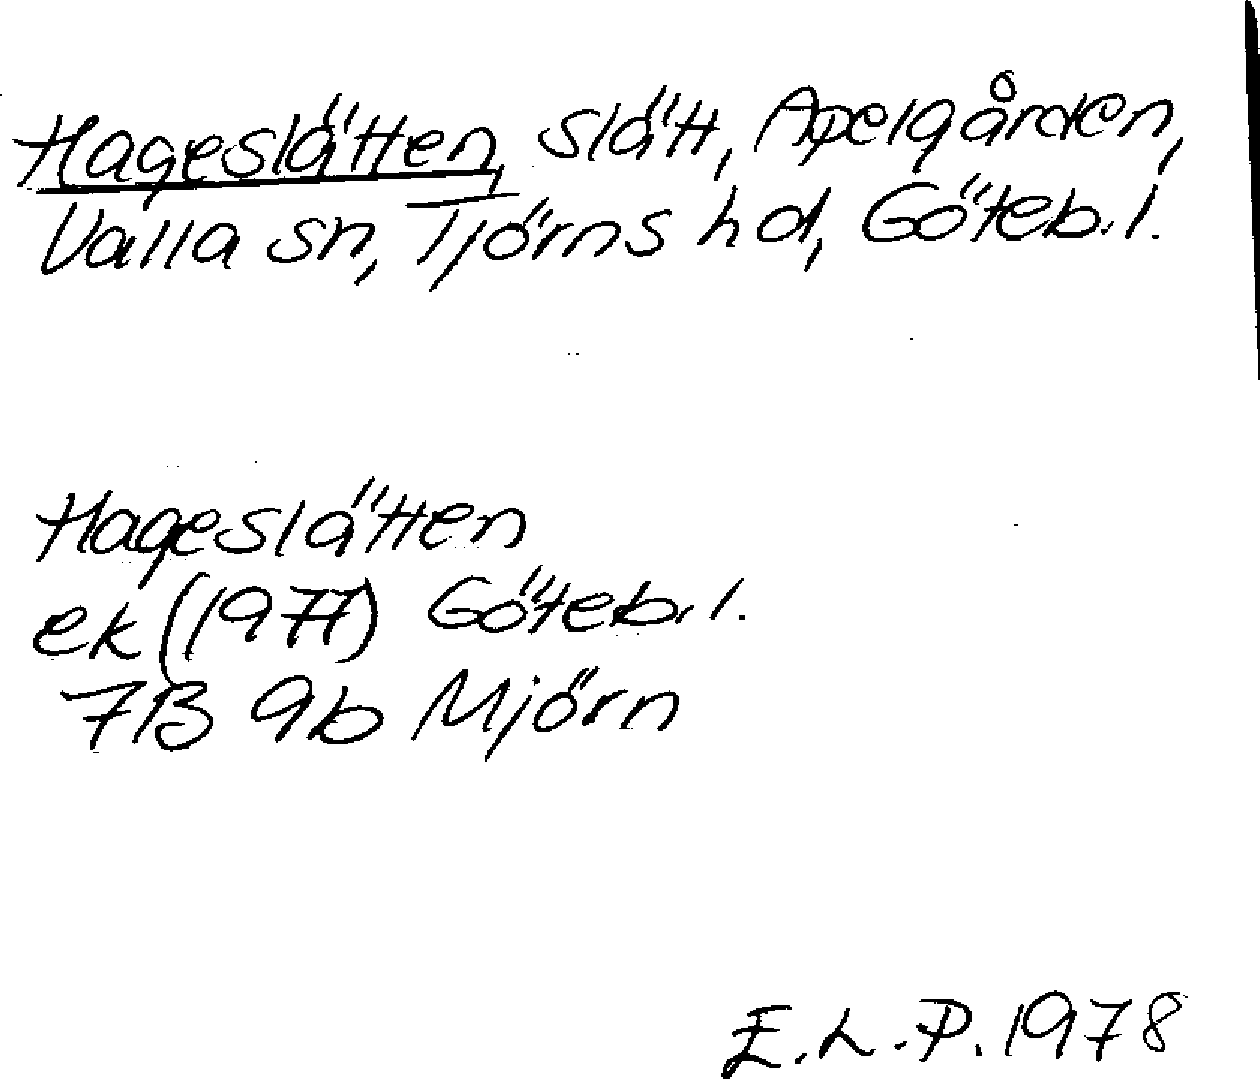 Hageslätten, slätt, Apelgården,
Valla sn, Tjörns hd, Göteb. l.
Hageslätten
ek (1977) Göteb. l.
7B 9b Mjörn
E.L.P. 1978